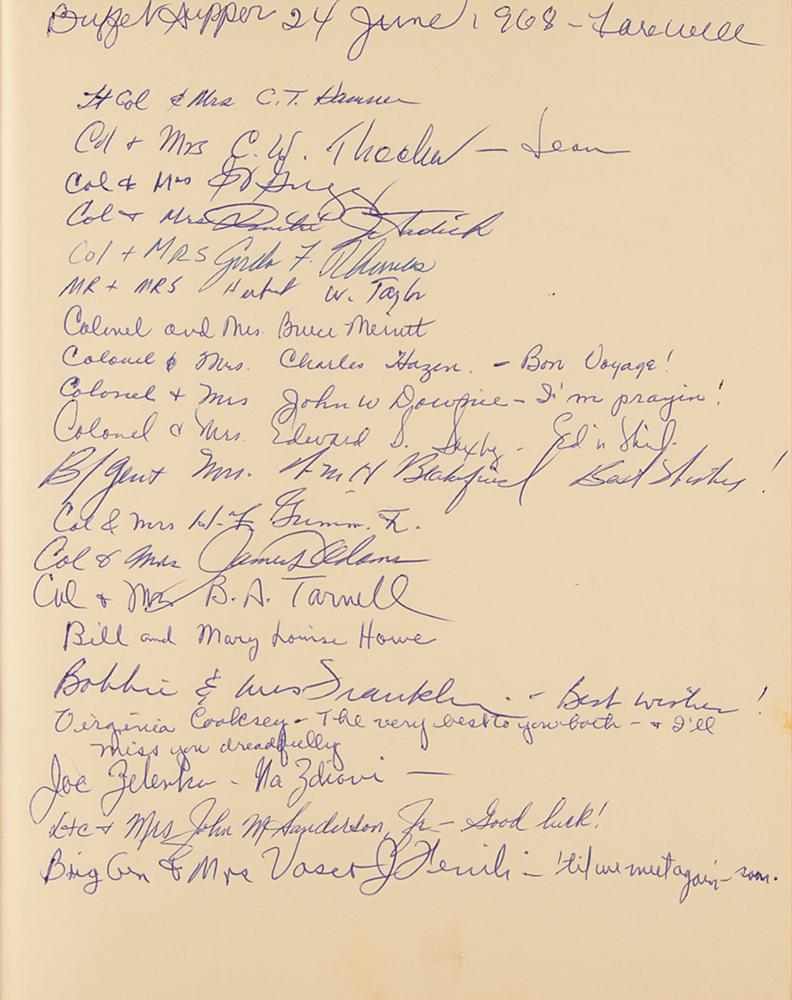 Buffet Supper 24 June 1968 - Farewell
Lt Col & Mrs C.T. Hamner
Col + Mrs C.W. - Jean
Col & Mrs
Col + Mrs
Col + MRS F.
MR + MRS Herbert W. Taylor
Colonel and Mrs. Bruce Merritt
Colonel & Mrs. Charles Hazen. - Bon Voyage!
Colonel + Mrs John W Downie - I'm prayin!
Colonel & Mrs. Edward S. - Ed 'n
B/Gen + Mrs. Wm H Blakefield Best Wishes!
Col & Mrs H.F. Grimm. Jr.
Col & Mrs James Adams
Col + Mrs B.A. Tarnell
Bill and Mary Louise Howe
Bobbie & Franklin. - Best wishes!
Virginia Cooksey - The very best to you both - & I'll
miss you dreadfully
Joe Zelenka - Na Zdravi -
Ltc + Mrs John M Sanderson, Jr - Good luck!
Brig Gen & Mrs - 'til we meet again - soon.